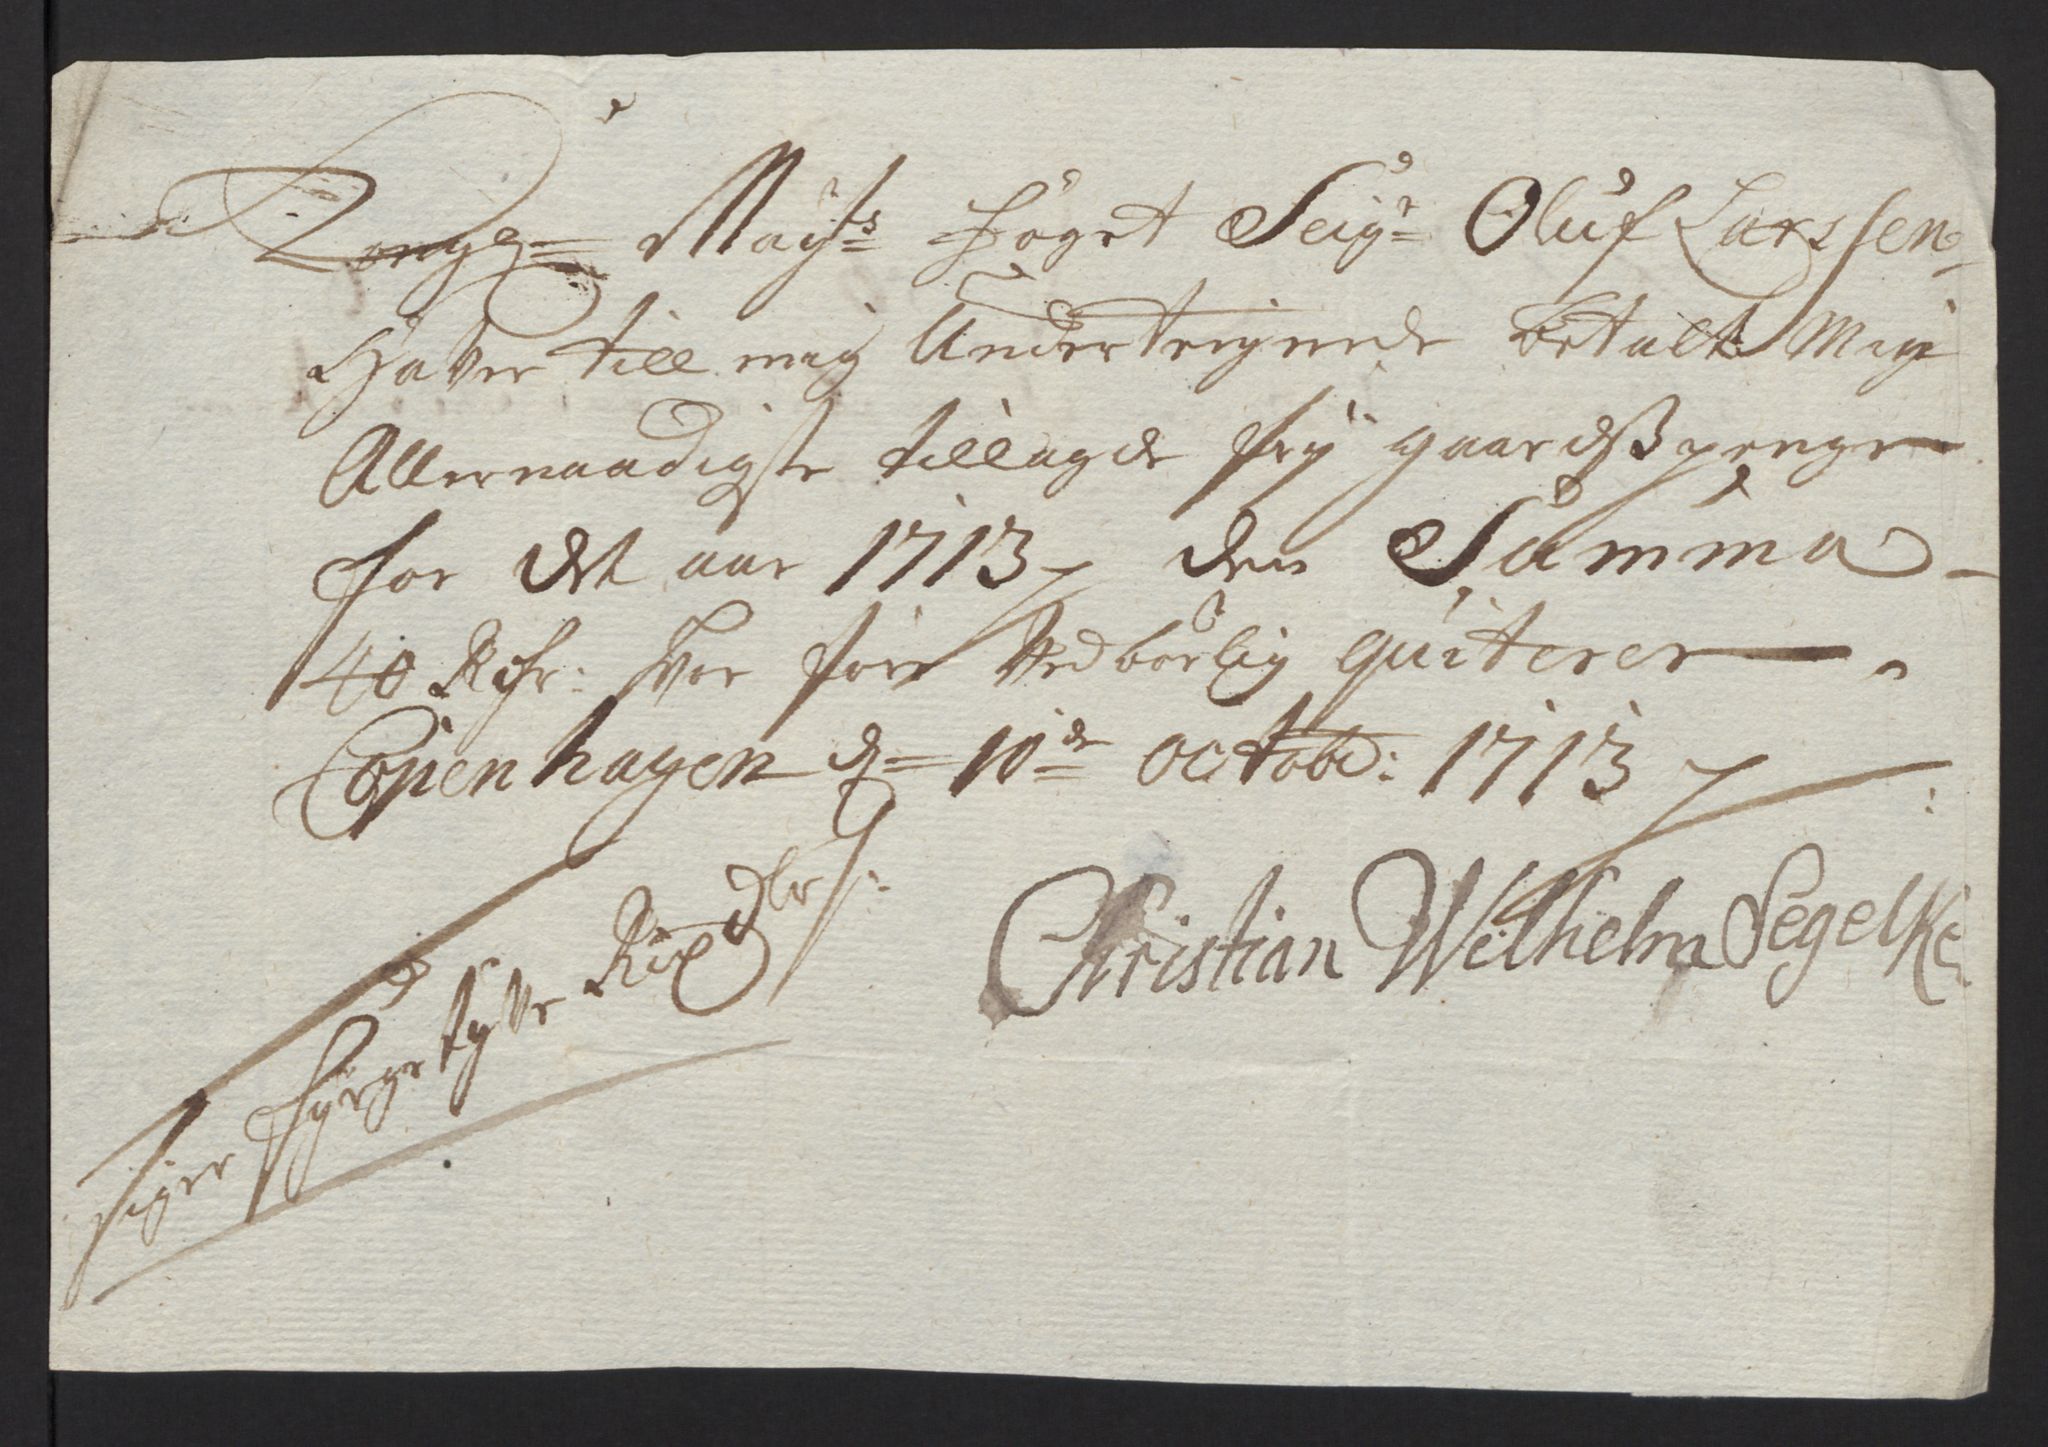 Kongl: Mayts foget Seigr Oluf Larssen
Haver till mig Underteignede betalt Mig
Allernaadigste tillagde frÿ gaardsß penge
for det aar 1713 den Summa
40 Rdr: hvor fore Vedbörlig quiterer
Copenhagen d: 10de octobr: 1713
Christian Wilhelm Segelke
siger fyrgetyve Rixdlr